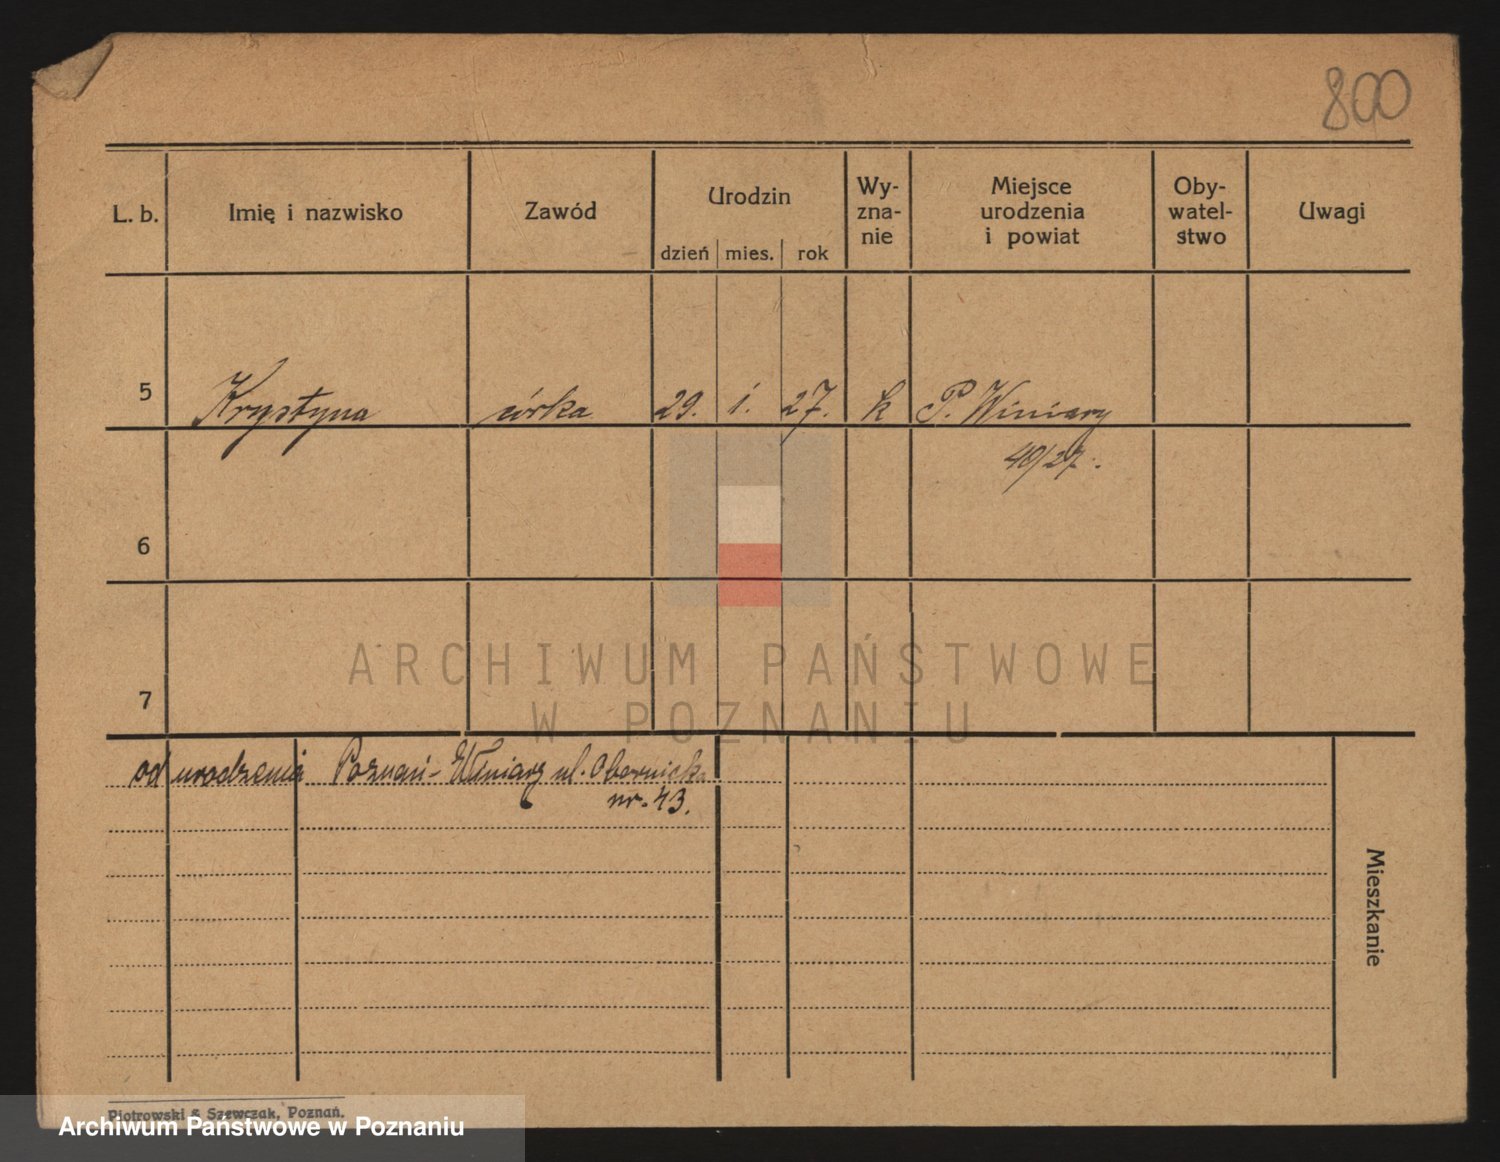 800
L. b.
Imię i nazwisko
Zawód
Urodzin
dzień mies. rok
Wy-
zna-
nie
Miejsce
urodzenia
i powiat
Oby-
watel-
stwo
Uwagi
5 Krystyna córka 29. 1. 27. k P. Winiary
40/27.
6
7
od urodzenia Poznań - Winiary ul. Obornicka
nr. 43.
Mieszkanie
ARCHIWUM PAŃSTWOWE
W POZNANIU
Piotrowski & Szewczak, Poznań.
Archiwum Państwowe w Poznaniu